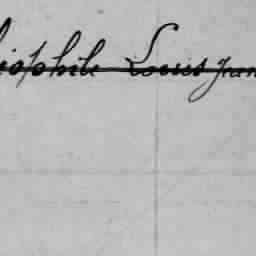 iophile Louis Jean